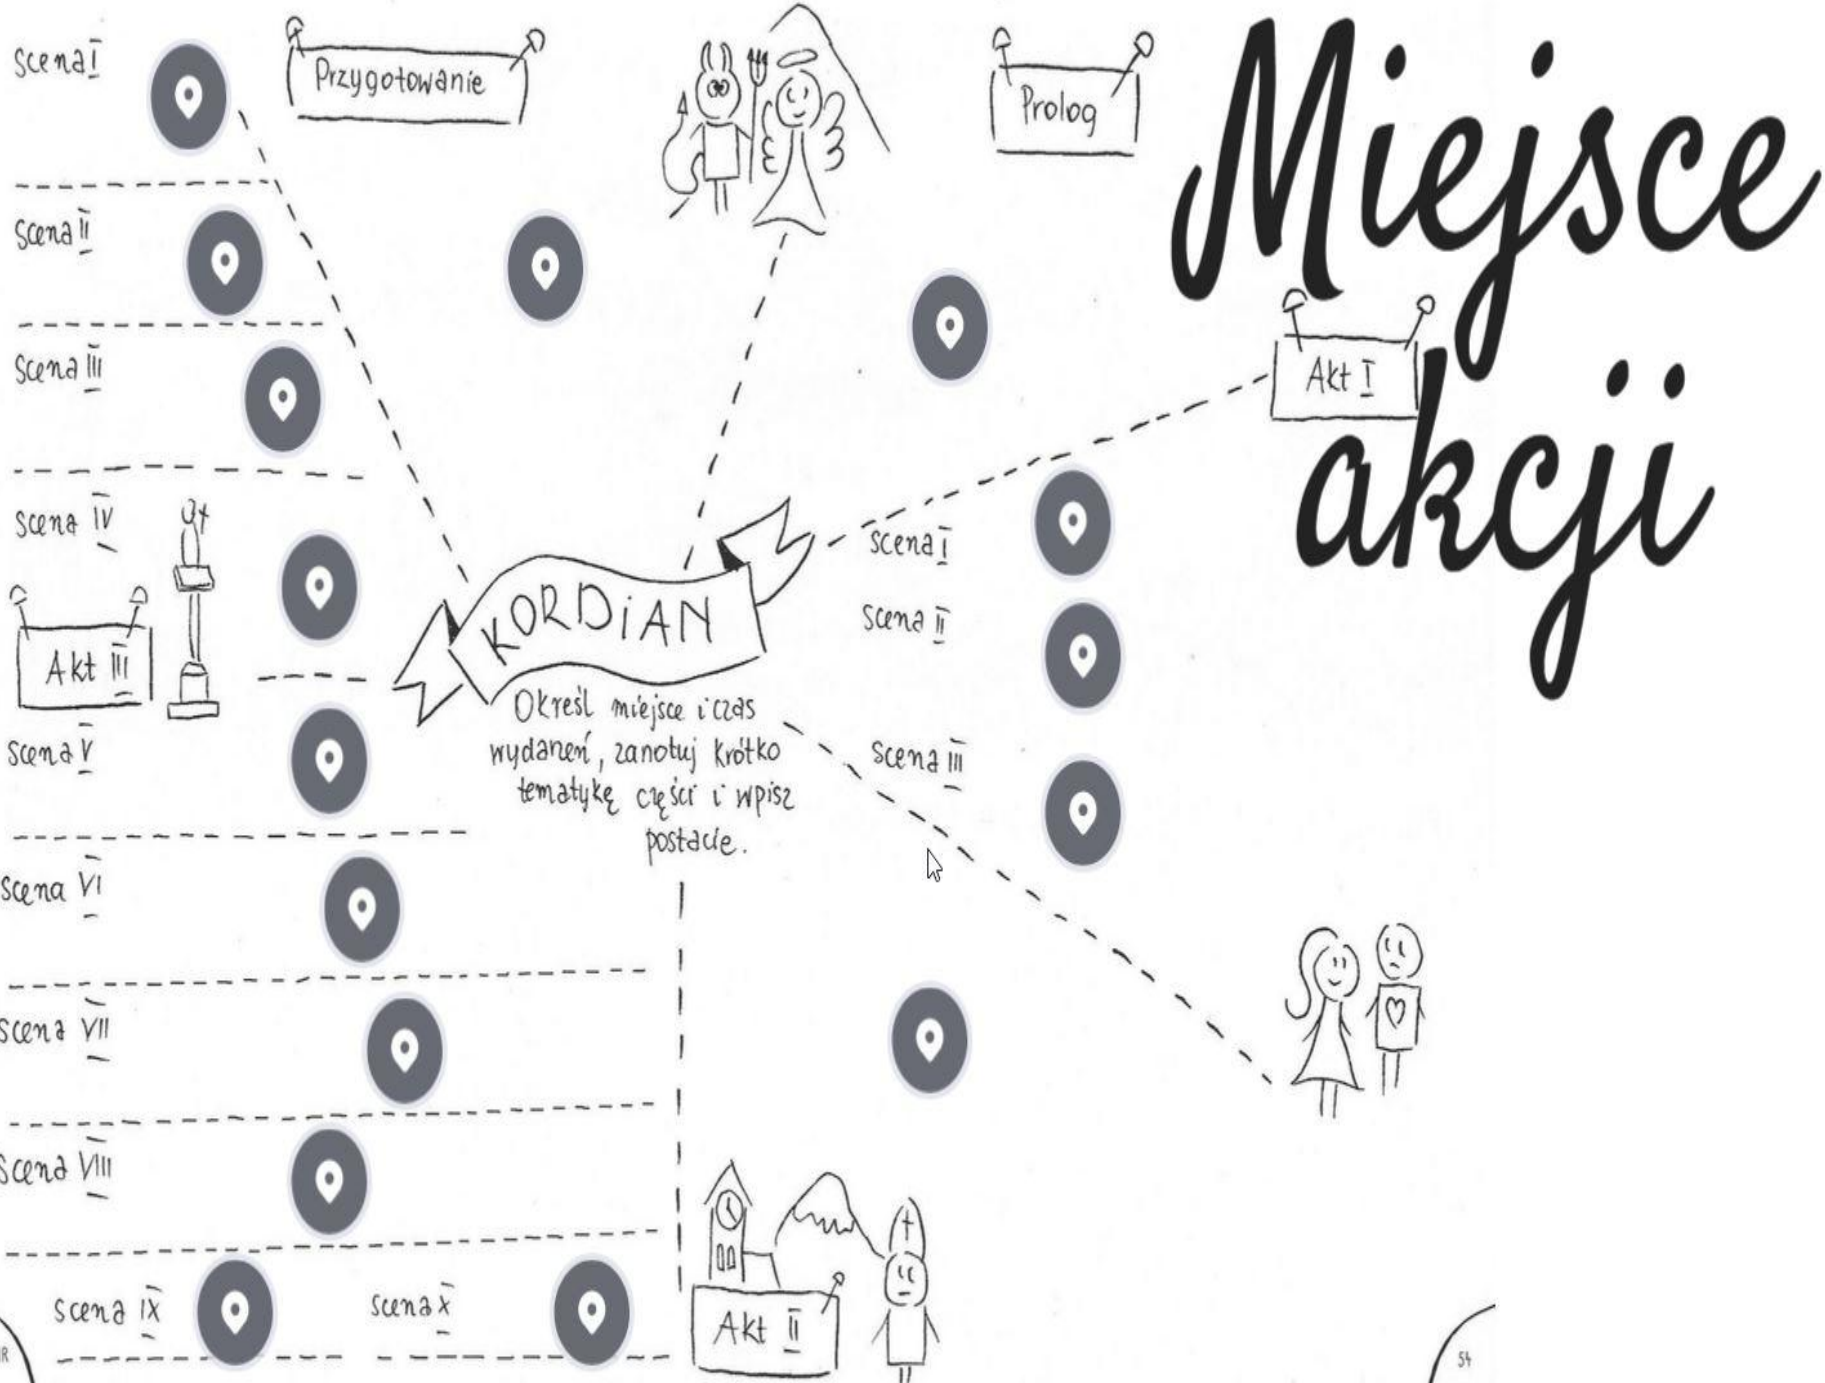 Miejsce
akcji
Przygotowanie
Prolog
Akt I
scena I
scena II
scena III
KORDiAN
Określ miejsce i czas
wydarzeń, zanotuj krótko
tematykę części i wpisz
postacie.
Akt II
Akt III
scena I
scena II
scena III
scena IV
scena V
scena VI
scena VII
scena VIII
scena IX
scena X
54